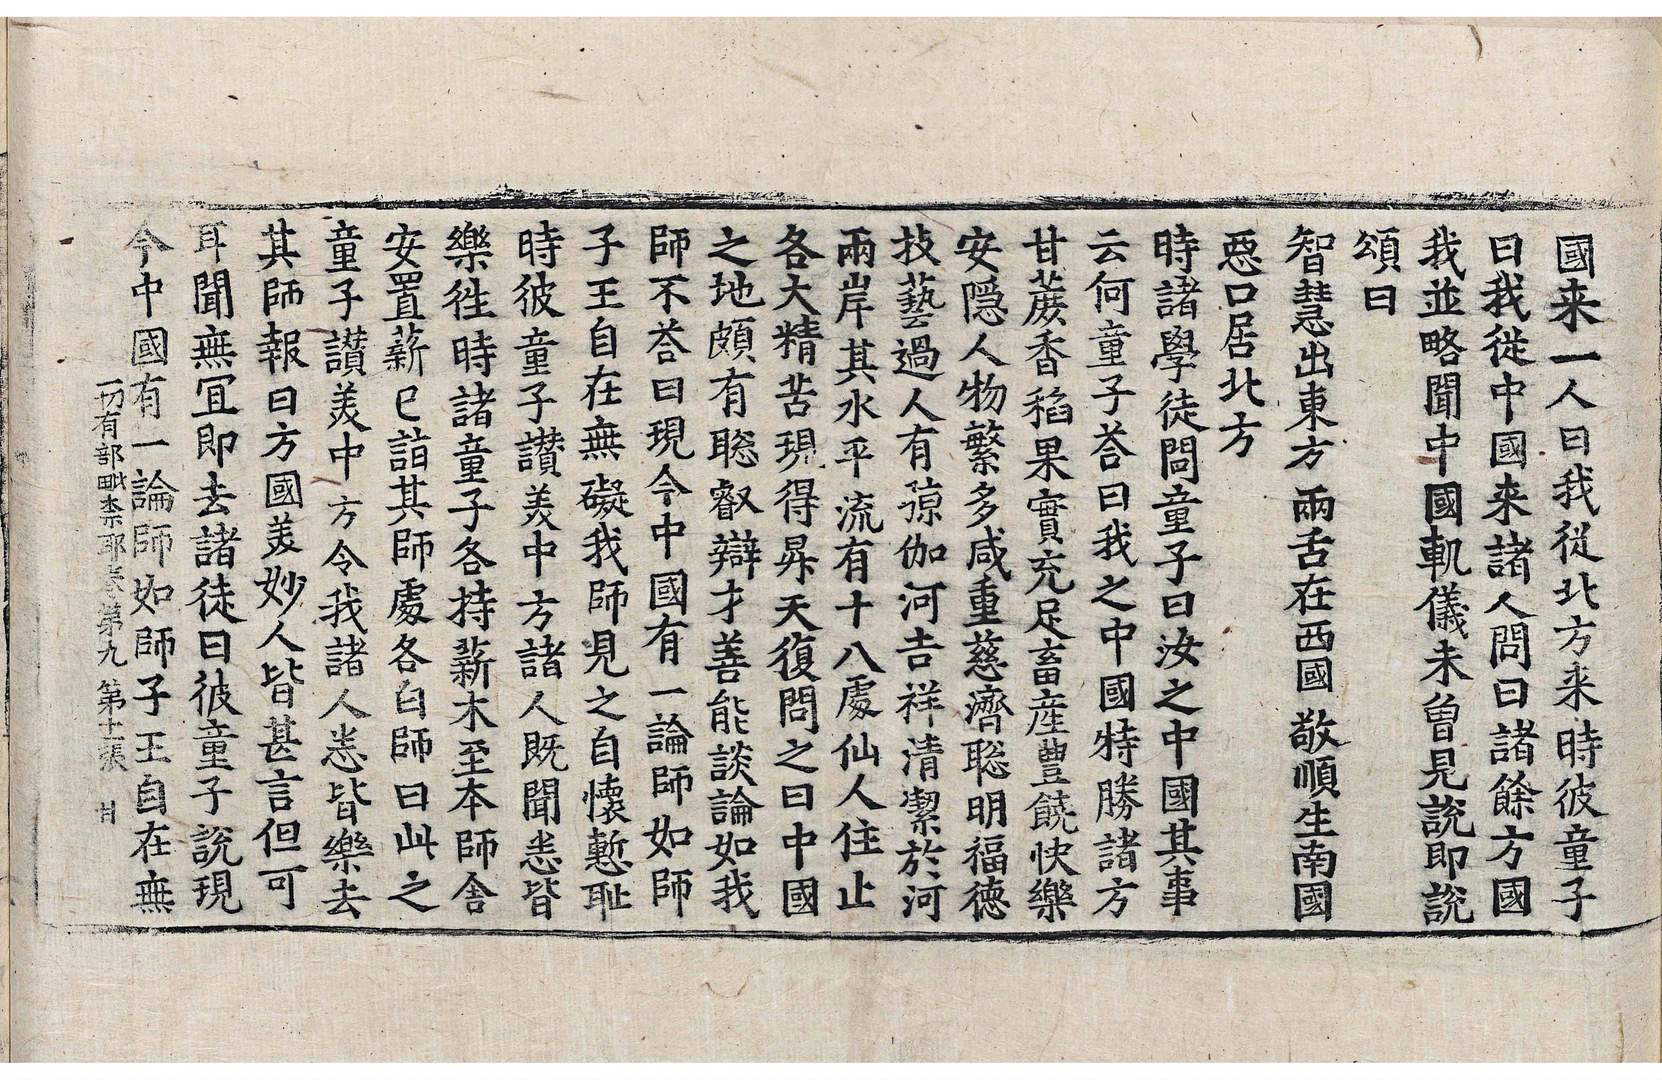 國来一人曰我從北方来時彼童子
曰我從中國来諸人問曰諸餘方國
我並略聞中國軌儀未曾見説即説
頌曰
智慧出東方 兩舌在西國 敬順生南國
惡口居北方
時諸學徒問童子曰汝之中國其事
云何童子荅曰我之中國特勝諸方
甘蔗香稻果實充足畜産豐饒快樂
安隱人物繁多咸重慈濟聡明福德
技藝過人有弶伽河吉祥清潔於河
兩岸其水平流有十八處仙人住止
各大精苦現得昇天復問之曰中國
之地頗有聡叡辯才善能談論如我
師不荅曰現今中國有一論師如師
子王自在無礙我師見之自懷慙耻
時彼童子讃羙中方諸人既聞悉皆
樂徃時諸童子各持薪木至本師舎
安置薪已詣其師處各白師曰此之
童子讃羙中方令我諸人悉皆樂去
其師報曰方國羙妙人皆甚言但可
耳聞無冝即去諸徒曰彼童子説現
今中國有一論師如師子王自在無
一切有部毗柰耶卷第九 第十一張 甘